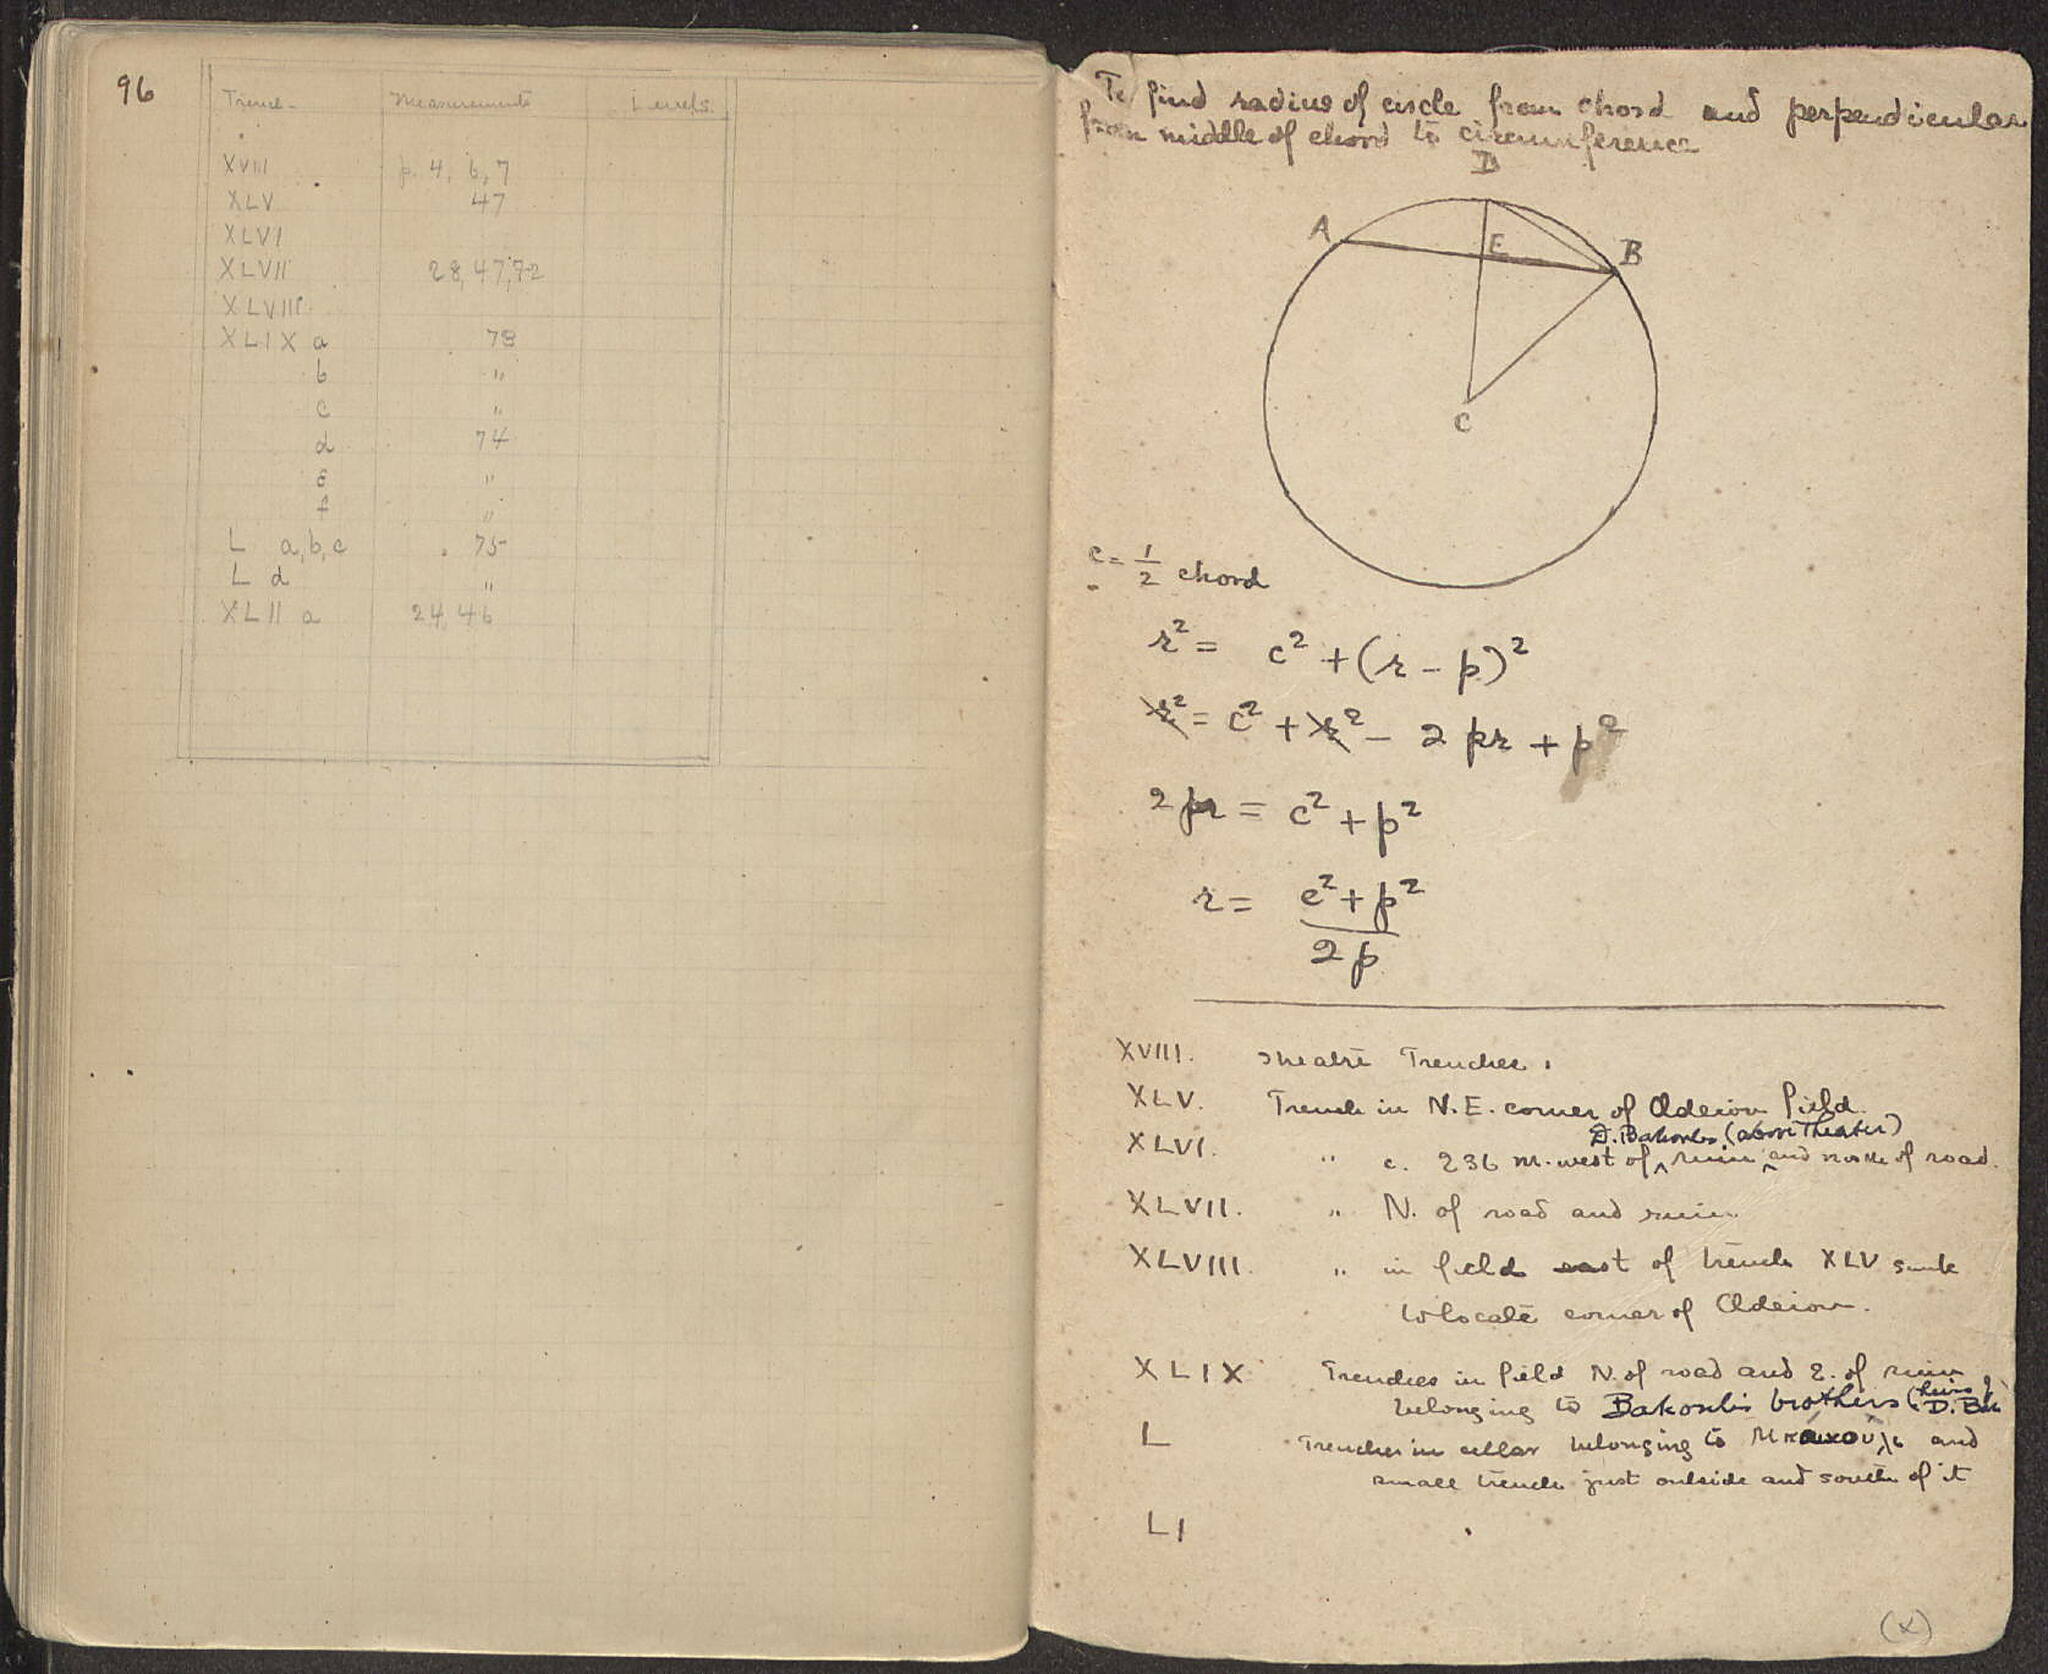 96
Trench Measurements Levels.
XVIII p. 4, 6, 7
XLV 47
XLVI
XLVII 28, 47, 72
XLVIII
XLIX a 78
b "
c "
d 74
e "
f "
L a, b, c 75
L d "
XLII a 24, 46
To find radius of circle from chord and perpendicular
from middle of chord to circumference
D
A E B
C
c = 1/2 chord
r² = c² + (r - p)²
r² = c² + r² - 2 pr + p²
2 pr = c² + p²
r = c² + p²
2 p
XVIII. Theatre Trenches.
XLV. Trench in N.E. corner of Odeion field.
D. Bakoulis (above Theater)
XLVI. " c. 236 m. west of ruin and north of road.
XLVII. " N. of road and ruin
XLVIII. " in field east of trench XLV sunk
to locate corner of Odeion.
XLIX Trenches in field N. of road and E. of ruin
belonging to Bakoulis brothers (heirs of
D. Bak
L Trenches in cellar belonging to and
small trench just outside and south of it
LI
(X)